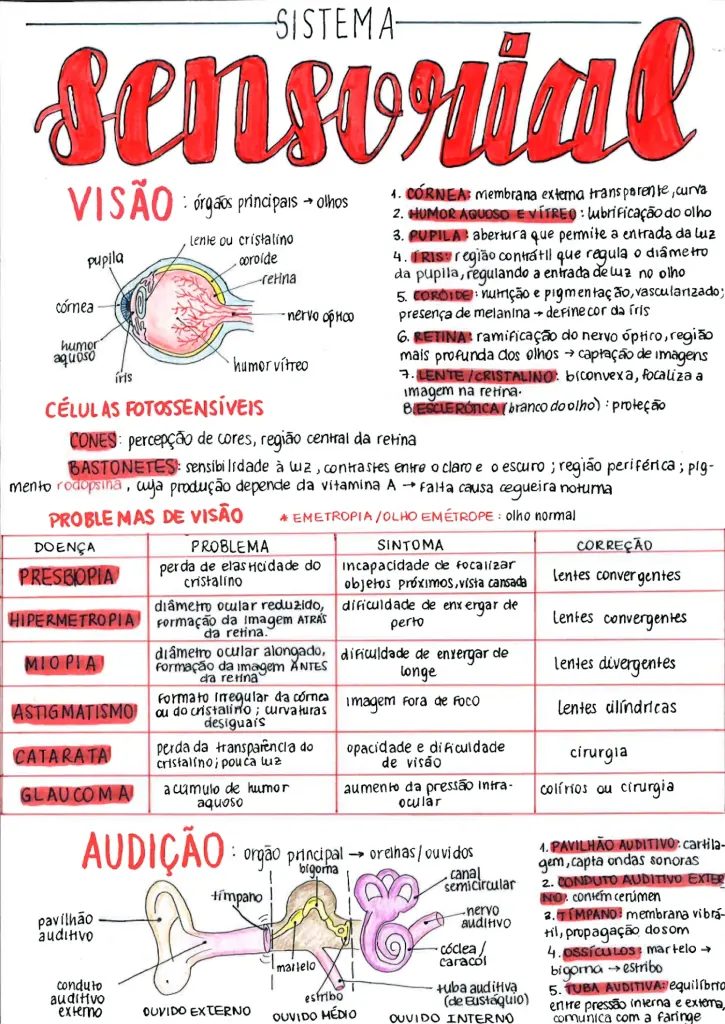 SISTEMA
sensorial
VISÃO : órgãos principais → olhos
pupila
lente ou cristalino
coroide
retina
córnea
nervo óptico
humor
aquoso
íris
humor vítreo
1. CÓRNEA: membrana externa transparente, curva
2. HUMOR AQUOSO E VÍTREO : lubrificação do olho
3. PUPILA : abertura que permite a entrada da luz
4. ÍRIS: região contrátil que regula o diâmetro
da pupila, regulando a entrada de luz no olho
5. COROIDE : nutrição e pigmentação, vascularizado;
presença de melanina → define cor da íris
6. RETINA : ramificação do nervo óptico, região
mais profunda dos olhos → captação de imagens
7. LENTE / CRISTALINO : biconvexa, focaliza a
imagem na retina.
8. ESCLERÓTICA (branco do olho) : proteção
CÉLULAS FOTOSSENSÍVEIS
CONES : percepção de cores, região central da retina
BASTONETES : sensibilidade à luz, contrastes entre o claro e o escuro ; região periférica ; pig-
mento rodopsina, cuja produção depende da vitamina A → falta causa cegueira noturna
PROBLEMAS DE VISÃO * EMETROPIA / OLHO EMÉTROPE : olho normal
DOENÇA PROBLEMA SINTOMA CORREÇÃO
PRESBIOPIA
perda de elasticidade do
cristalino
incapacidade de focalizar
objetos próximos, vista cansada
lentes convergentes
HIPERMETROPIA
diâmetro ocular reduzido,
formação da imagem ATRÁS
da retina.
dificuldade de enxergar de
perto
lentes convergentes
MIOPIA
diâmetro ocular alongado,
formação da imagem ANTES
da retina
dificuldade de enxergar de
longe
lentes divergentes
ASTIGMATISMO
formato irregular da córnea
ou do cristalino ; curvaturas
desiguais
imagem fora de foco
lentes cilíndricas
CATARATA
perda da transparência do
cristalino ; pouca luz
opacidade e dificuldade
de visão
cirurgia
GLAUCOMA
acúmulo de humor
aquoso
aumento da pressão intra-
ocular
colírios ou cirurgia
AUDIÇÃO : orgão principal → orelhas / ouvidos
pavilhão
auditivo
conduto
auditivo
externo
tímpano
bigorna
martelo
estribo
canal
semicircular
nervo
auditivo
cóclea /
caracol
tuba auditiva
(de Eustáquio)
OUVIDO EXTERNO
OUVIDO MÉDIO
OUVIDO INTERNO
1. PAVILHÃO AUDITIVO : cartila-
gem, capta ondas sonoras
2. CONDUTO AUDITIVO EXTER
NO : contém cerúmen
3. TÍMPANO : membrana vibrá-
til, propagação do som
4. OSSÍCULOS : martelo →
bigorna → estribo
5. TUBA AUDITIVA: equilíbrio
entre pressão interna e externa,
comunica com a faringe